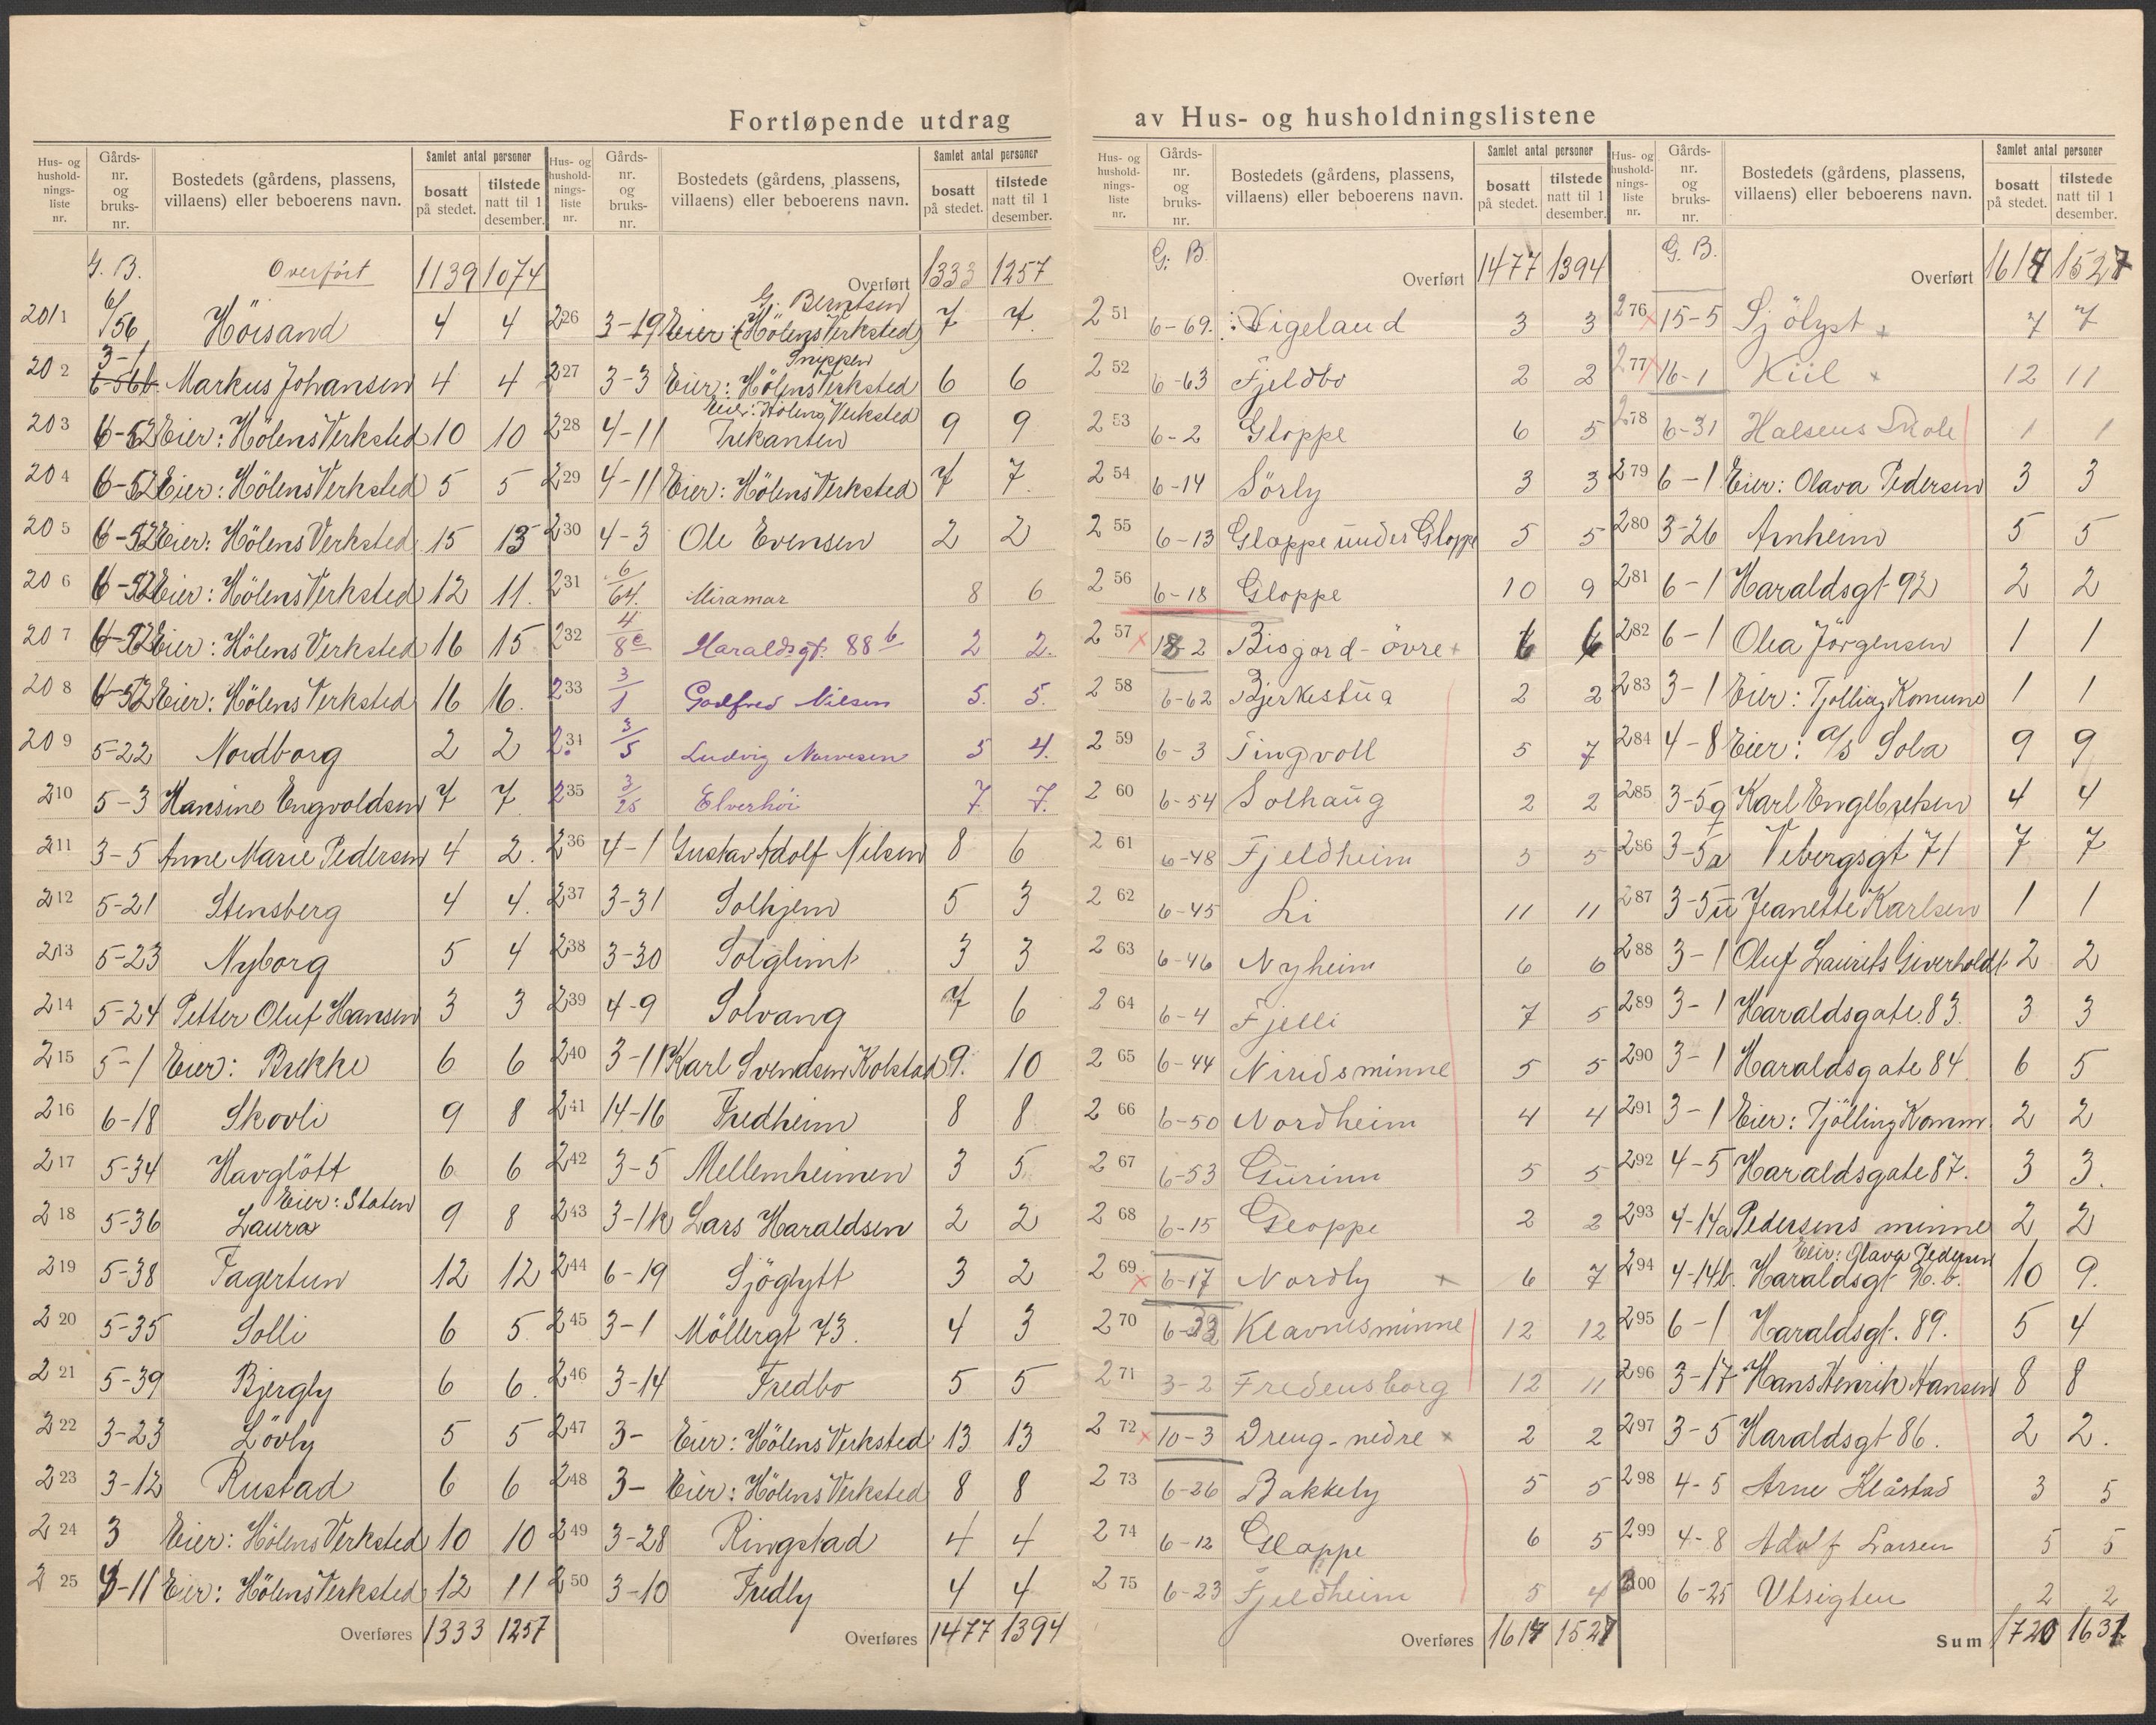 Fortløpende utdrag av Hus- og husholdningslistene
Hus- og hushold-nings-liste nr. | Gårds-nr. og bruks-nr. | Bostedets (gårdens, plassens, villaens) eller beboerens navn. | Samlet antal personer bosatt på stedet. | tilstede natt til 1 desember.
G. B. Overført 1139 1074
201 6/56 Höisand 4 4
202 3-1 6-56b. Markus Johansen 4 4
203 6-52 Eier: Hölens Verksted 10 10
204 6-52 Eier: Hölens Verksted 5 5
205 6-52 Eier: Hölens Verksted 15 13
206 6-52 Eier: Hölens Verksted 12 11.
207 6-52 Eier: Hölens Verksted 16 15
208 6-52 Eier: Hölens Verksted 16 16.
209 5-22 Nordborg 2 2
210 5-3 Hansine Engvoldsen 7 7
211 3-5 Anne Marie Pedersen 4 2.
212 5-21 Stensberg 4 4.
213 5-23 Nyborg 5 4
214 5-24 Petter Oluf Hansen 3 3
215 5-1 Eier: Brekke 6 6
216 6-18 Skovli 9 8
217 5-34 Havglött 6 6
218 5-36 Eier: Staten Laura 9 8
219 5-38 Fagertun 12 12
220 5-35 Solli 6 5
221 5-39 Bjergly 6 6.
222 3-23 Lövly 5 5
223 3-12 Rustad 6 6
224 3 Eier: Hölens Verksted 10 10
225 4-11 Eier: Hölens Verksted 12 11
Overføres 1333 1257
Hus- og hushold-nings-liste nr. | Gårds-nr. og bruks-nr. | Bostedets (gårdens, plassens, villaens) eller beboerens navn. | Samlet antal personer bosatt på stedet. | tilstede natt til 1 desember.
Overført 1333 1257
226 3-19 G. Berntsen Eier: (Hölens Verksted) 7 7.
227 3-3 Snippen Eier: Hölens Verksted 6 6
228 4-11 Eier: Hölens Verksted Trekanten 9 9
229 4-11 Eier: Hölens Verksted 7 7.
230 4-3 Ole Evensen 2 2
231 6/64. Miramar 8 6
232 4/8e Haraldsgt. 88b 2 2.
233 3/1 Godfred Nilsen 5. 5.
234 3/5 Ludvig Narvesen 5 4.
235 3/25 Elverhöi 7. 7.
236 4-1 Gustav Adolf Nilsen 8 6
237 3-31 Solhjem 5 3
238 3-30 Solglimt 3 3
239 4-9 Solvang 7 6
240 3-11 Karl Svendsen Kolstad 9. 10
241 14-16 Fredheim 8 8
242 3-5 Mellemheimen 3 5
243 3-1k Lars Haraldsen 2 2
244 6-19 Sjöglytt 3 2
245 3-1 Möllergt 73. 4 3
246 3-14 Fredbo 5 5
247 3- Eier: Hölens Verksted 13 13
248 3- Eier: Hölens Verksted 8 8
249 3-28 Ringstad 4 4
250 3-10 Fredly 4 4
Overføres 1477 1394
Hus- og hushold-nings-liste nr. | Gårds-nr. og bruks-nr. | Bostedets (gårdens, plassens, villaens) eller beboerens navn. | Samlet antal personer bosatt på stedet. | tilstede natt til 1 desember.
G. B. Overført 1477 1394
251 6-69. Vigeland 3 3
252 6-63 Fjeldbo 2 2
253 6-2 Gloppe 6 5
254 6-14 Sörly 3 3
255 6-13 Gloppe under Gloppe 5 5
256 6-18 Gloppe 10 9
257 18-2 Bisgord-övre 6 6
258 6-62 Bjerkestua 2 2
259 6-3 Tingvoll 5 7
260 6-54 Solhaug 2 2
261 6-48 Fjeldheim 5 5
262 6-45 Li 11 11
263 6-46 Nyheim 6 6
264 6-4 Fjelli 7 5
265 6-44 Niridsminne 5 5
266 6-50 Nordheim 4 4
267 6-53 Gurinn 5 5
268 6-15 Gloppe 2 2
269 6-17 Nordly 6 7
270 6-33 Klavnesminne 12 12
271 3-2 Fredensborg 12 11
272 10-3 Dreng-nedre 2 2
273 6-26 Bakkely 5 5
274 6-12 Gloppe 6 5
275 6-23 Fjeldheim 5 4
Overføres 1617 1527
Hus- og hushold-nings-liste nr. | Gårds-nr. og bruks-nr. | Bostedets (gårdens, plassens, villaens) eller beboerens navn. | Samlet antal personer bosatt på stedet. | tilstede natt til 1 desember.
G. B. Overført 1617 1527
276 15-5 Sjölyst 7 7
277 16-1 Kiil 12 11
278 6-31 Halsens Skole 1 1
279 6-1 Eier: Olava Pedersen 3 3
280 3-26 Arnheim 5 5
281 6-1 Haraldsgt 92 2 2
282 6-1 Olea Jörgensen 1 1
283 3-1 Eier: Tjölling Komune 1 1
284 4-8 Eier: A/S Sola 9 9
285 3-5g Karl Englbretsen 4 4
286 3-5a Vebergsgt 71 7 7
287 3-5u Jeanette Karlsen 1 1
288 3-1 Oluf Laurits Giverholdt 2 2
289 3-1 Haraldsgate 83. 3 3
290 3-1 Haraldsgate 84. 6 5
291 3-1 Eier: Tjölling Komm. 2 2
292 4-5 Haraldsgate 87. 3 3.
293 4-14a Pedersens minne 2 2
294 4-14b. Eier: Olava Pedersen Haraldsgt 90.b. 10 9.
295 6-1 Haraldsgt. 89. 5 4
296 3-17 Hans Henrik Hansen 8 8
297 3-5 Haraldsgt 86. 2 2.
298 4-5 Arne Klåstad 3 5
299 4-8 Adolf Larsen 5 5
300 6-25 Utsigten 2 2
Sum 1720 1631